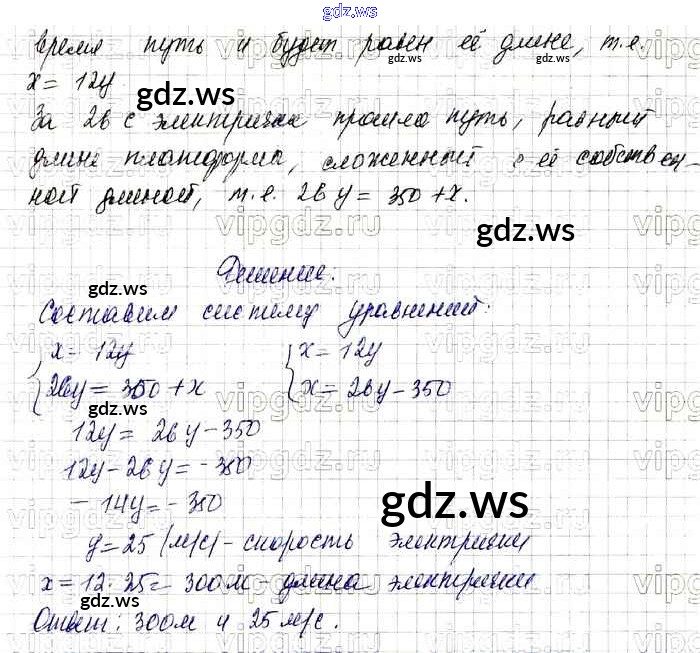 gdz.ws
время путь и будет равен её длине, т.е.
x = 12y
gdz.ws
За 26 с электричка прошла путь, равный
длине платформы, сложенный с её собствен-
ной длиной, т.е. 26y = 350 + x.
gdz.ws
gdz.ws
Решение:
gdz.ws
Составим систему уравнений:
x = 12y x = 12y
26y = 350 + x x = 26y - 350
gdz.ws
12y = 26y - 350
12y - 26y = -350
- 14y = - 350
gdz.ws
y = 25 (м/с) - скорость электрички
x = 12·25 = 300м - длина электрички
gdz.ws
Ответ: 300м и 25 м/с.
gdz.ws